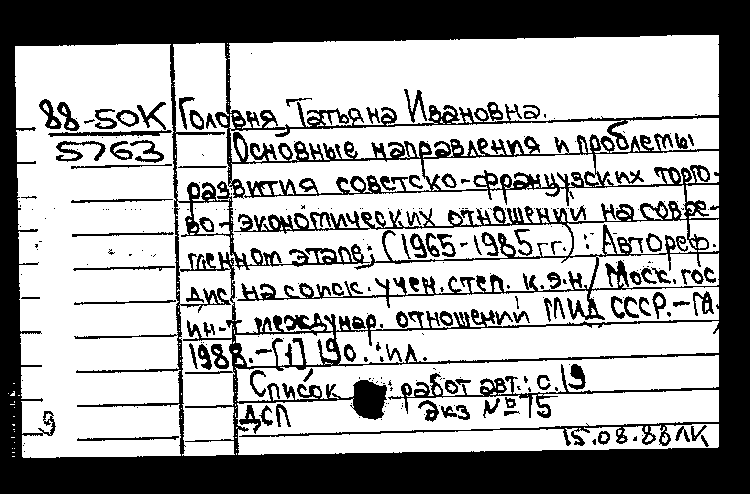 88-50К Головня, Татьяна Ивановна.
5763 Основные направления и проблемы
развития советско-французских торго-
во-экономических отношений на совре-
менном этапе; (1965-1985 гг.): Автореф.
дис. на соиск. учен. степ. к.э.н./ Моск. гос
ин-т междунар. отношений МИД СССР.- М.,
1988.-[1] 19с. :ил.
Список работ авт.: с.19
ДСП Экз №75
9
15.08.88 ЛК